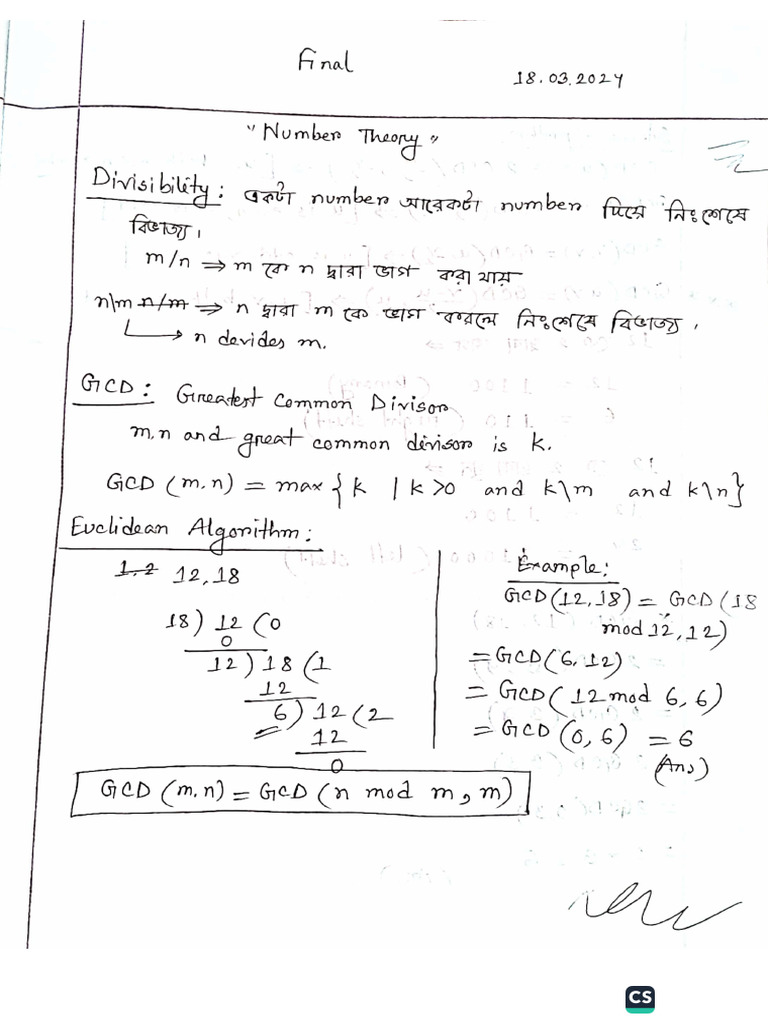 Final
18.03.2024
"Number Theory"
Divisibility: একটা number আরেকটা number দিয়ে নিঃশেষে
বিভাজ্য।
m/n ⇒ m কে n দ্বারা ভাগ করা যায়
n\m n/m ⇒ n দ্বারা m কে ভাগ করলে নিঃশেষে বিভাজ্য।
→ n devides m.
GCD: Greatest Common Divisor
m,n and great common divisor is k.
GCD (m,n) = max { k | k>0 and k\m and k\n}
Euclidean Algorithm:
1,2 12,18
18) 12 (0
0
12) 18 (1
12
6) 12 (2
12
0
Example:
GCD(12,18) = GCD(18
mod 12, 12)
= GCD(6,12)
= GCD(12 mod 6, 6)
= GCD (0,6) = 6
(Ans)
GCD (m,n) = GCD (n mod m, m)
CS